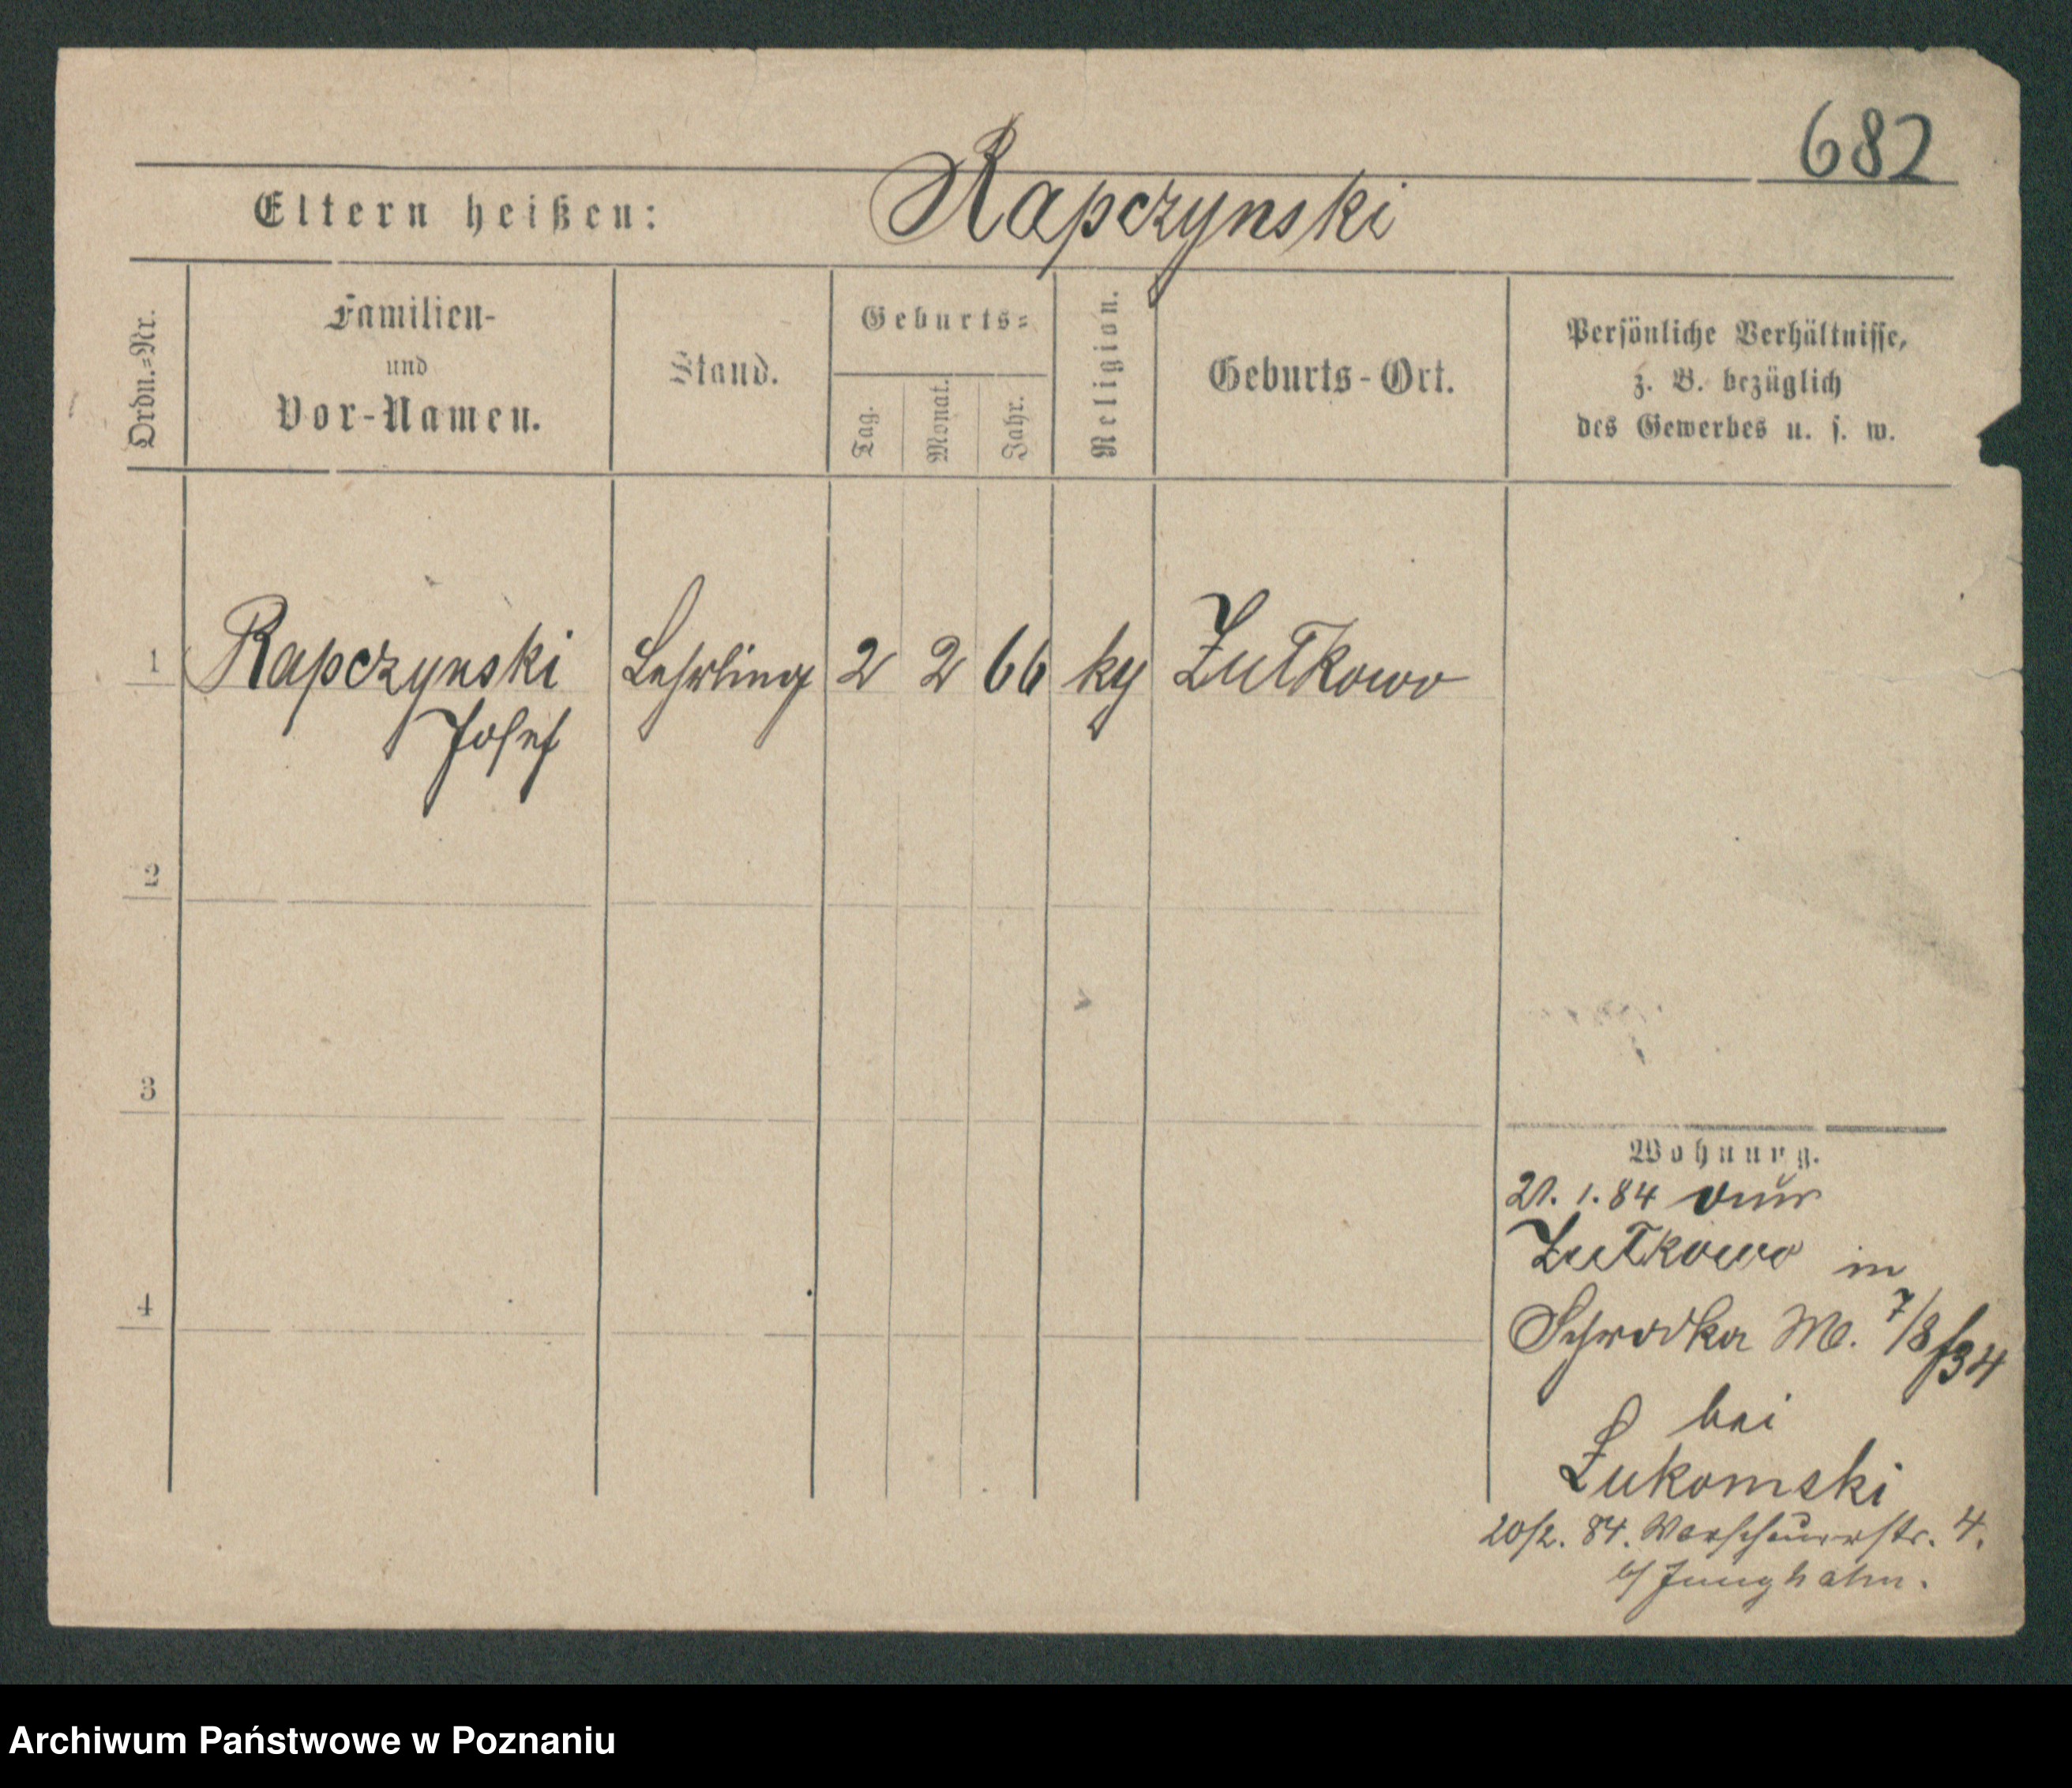 682
Eltern heißen: Rapczynski
Ordn.=Nr.
Familien-
und
Vor-Namen.
Stand.
Geburts=
Tag.
Monat.
Jahr.
Religion.
Geburts-Ort.
Persönliche Verhältnisse,
z. B. bezüglich
des Gewerbes u. s. w.
1 Rapczynski Lehrling 2 2 66 Zutkowo
Josef
2
3
4
Wohnung.
21. 1. 84 aus
Zutkowo in
Schrodka M. 7/8
bei
Zukomski
20/2. 84. Warschauerstr. 4.
b/ Junghahn.
Archiwum Państwowe w Poznaniu